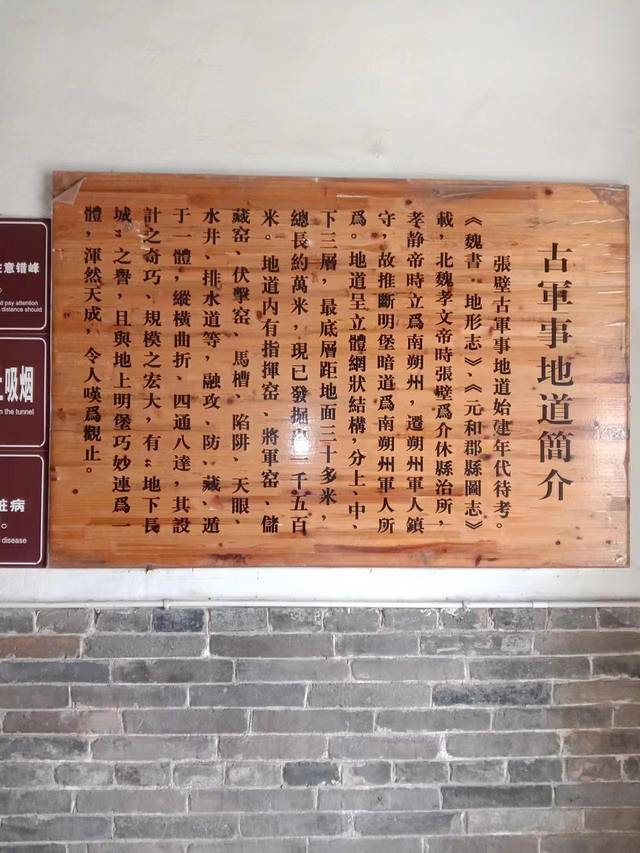 古軍事地道簡介
張壁古軍事地道始建年代待考。
《魏書·地形志》、《元和郡縣圖志》
載，北魏孝文帝時張壁爲介休縣治所，
孝静帝時立爲南朔州，遷朔州軍人鎮
守，故推斷明堡暗道爲南朔州軍人所
爲。地道呈立體網狀结構，分上、中、
下三層，最底層距地面三十多米，
總長約萬米，現已發掘 千五百
米。地道内有指揮窑、將軍窑、儲
藏窑、伏擊窑、馬槽、陷阱、天眼、
水井、排水道等，融攻、防、藏、遁
于一體，縱横曲折、四通八達，其設
計之奇巧、規模之宏大，有“地下長
城”之譽，且與地上明堡巧妙連爲一
體，渾然天成，令人嘆爲觀止。
注意错峰
pay attention
distance should
止吸烟
in the tunnel
脏病
disease